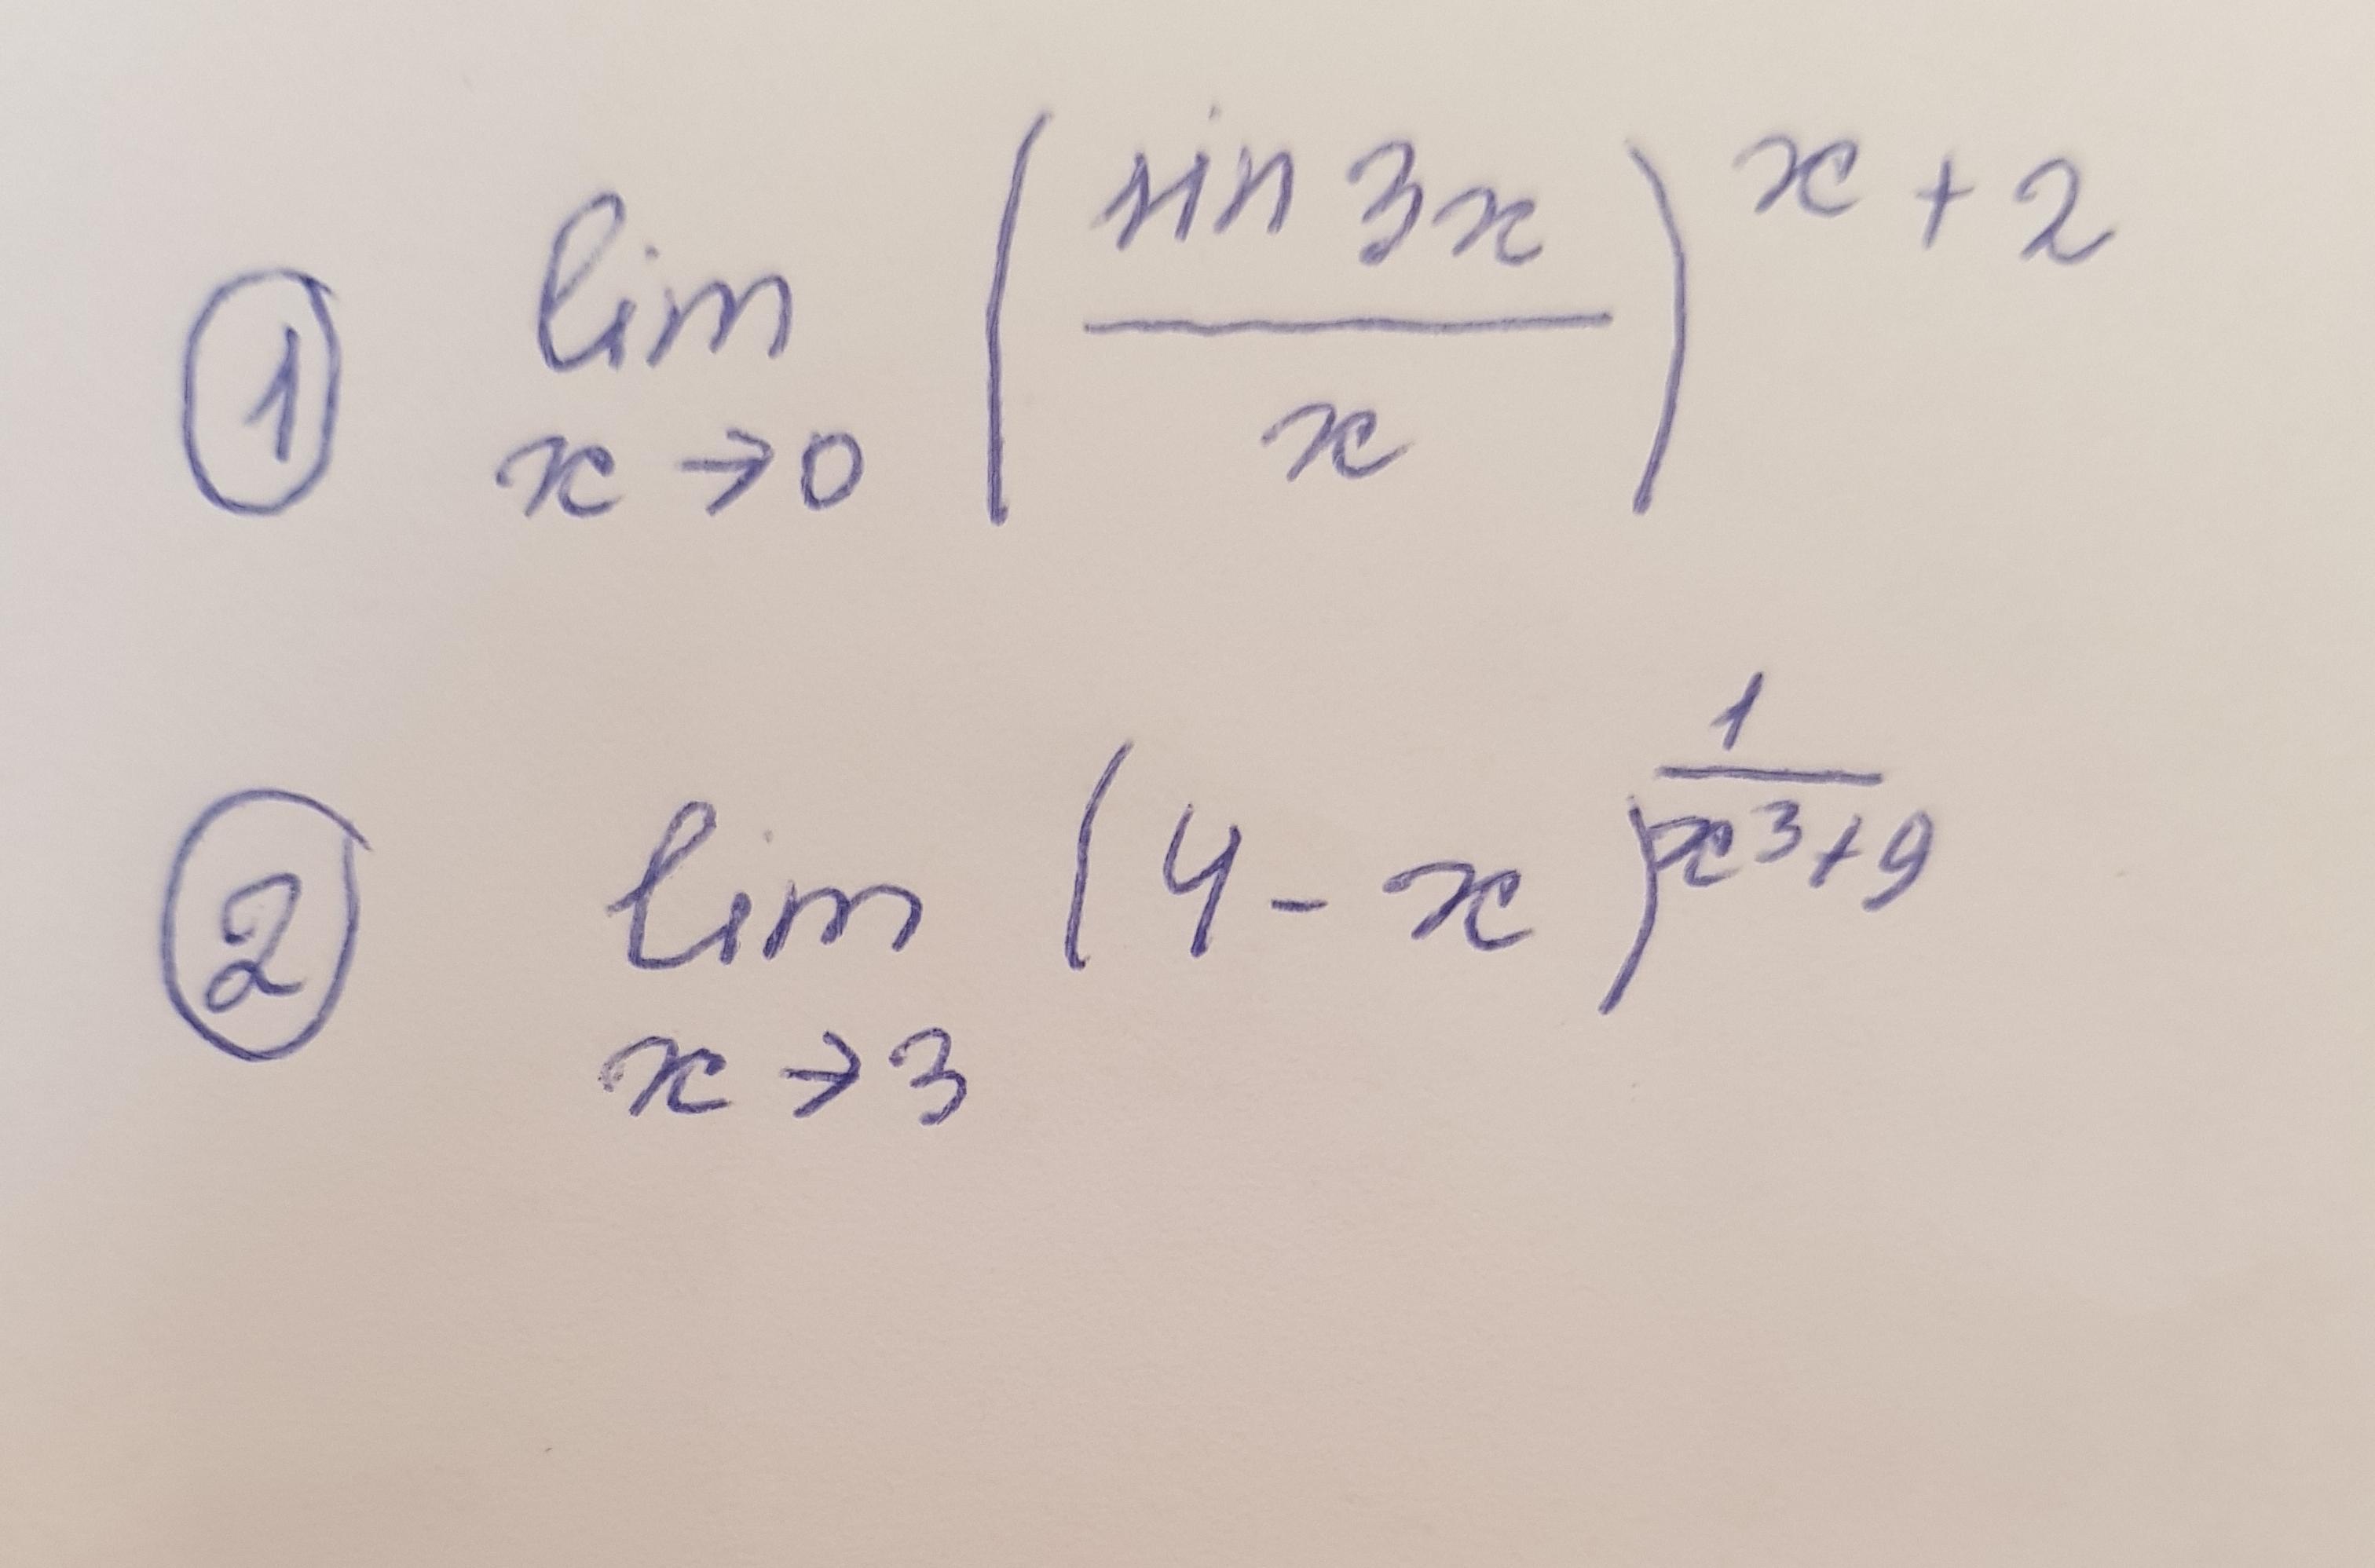 ① lim x→0 (sin 3x / x)^(x + 2)
② lim x→3 (4 - x)^(1 / (x^3 + 9))